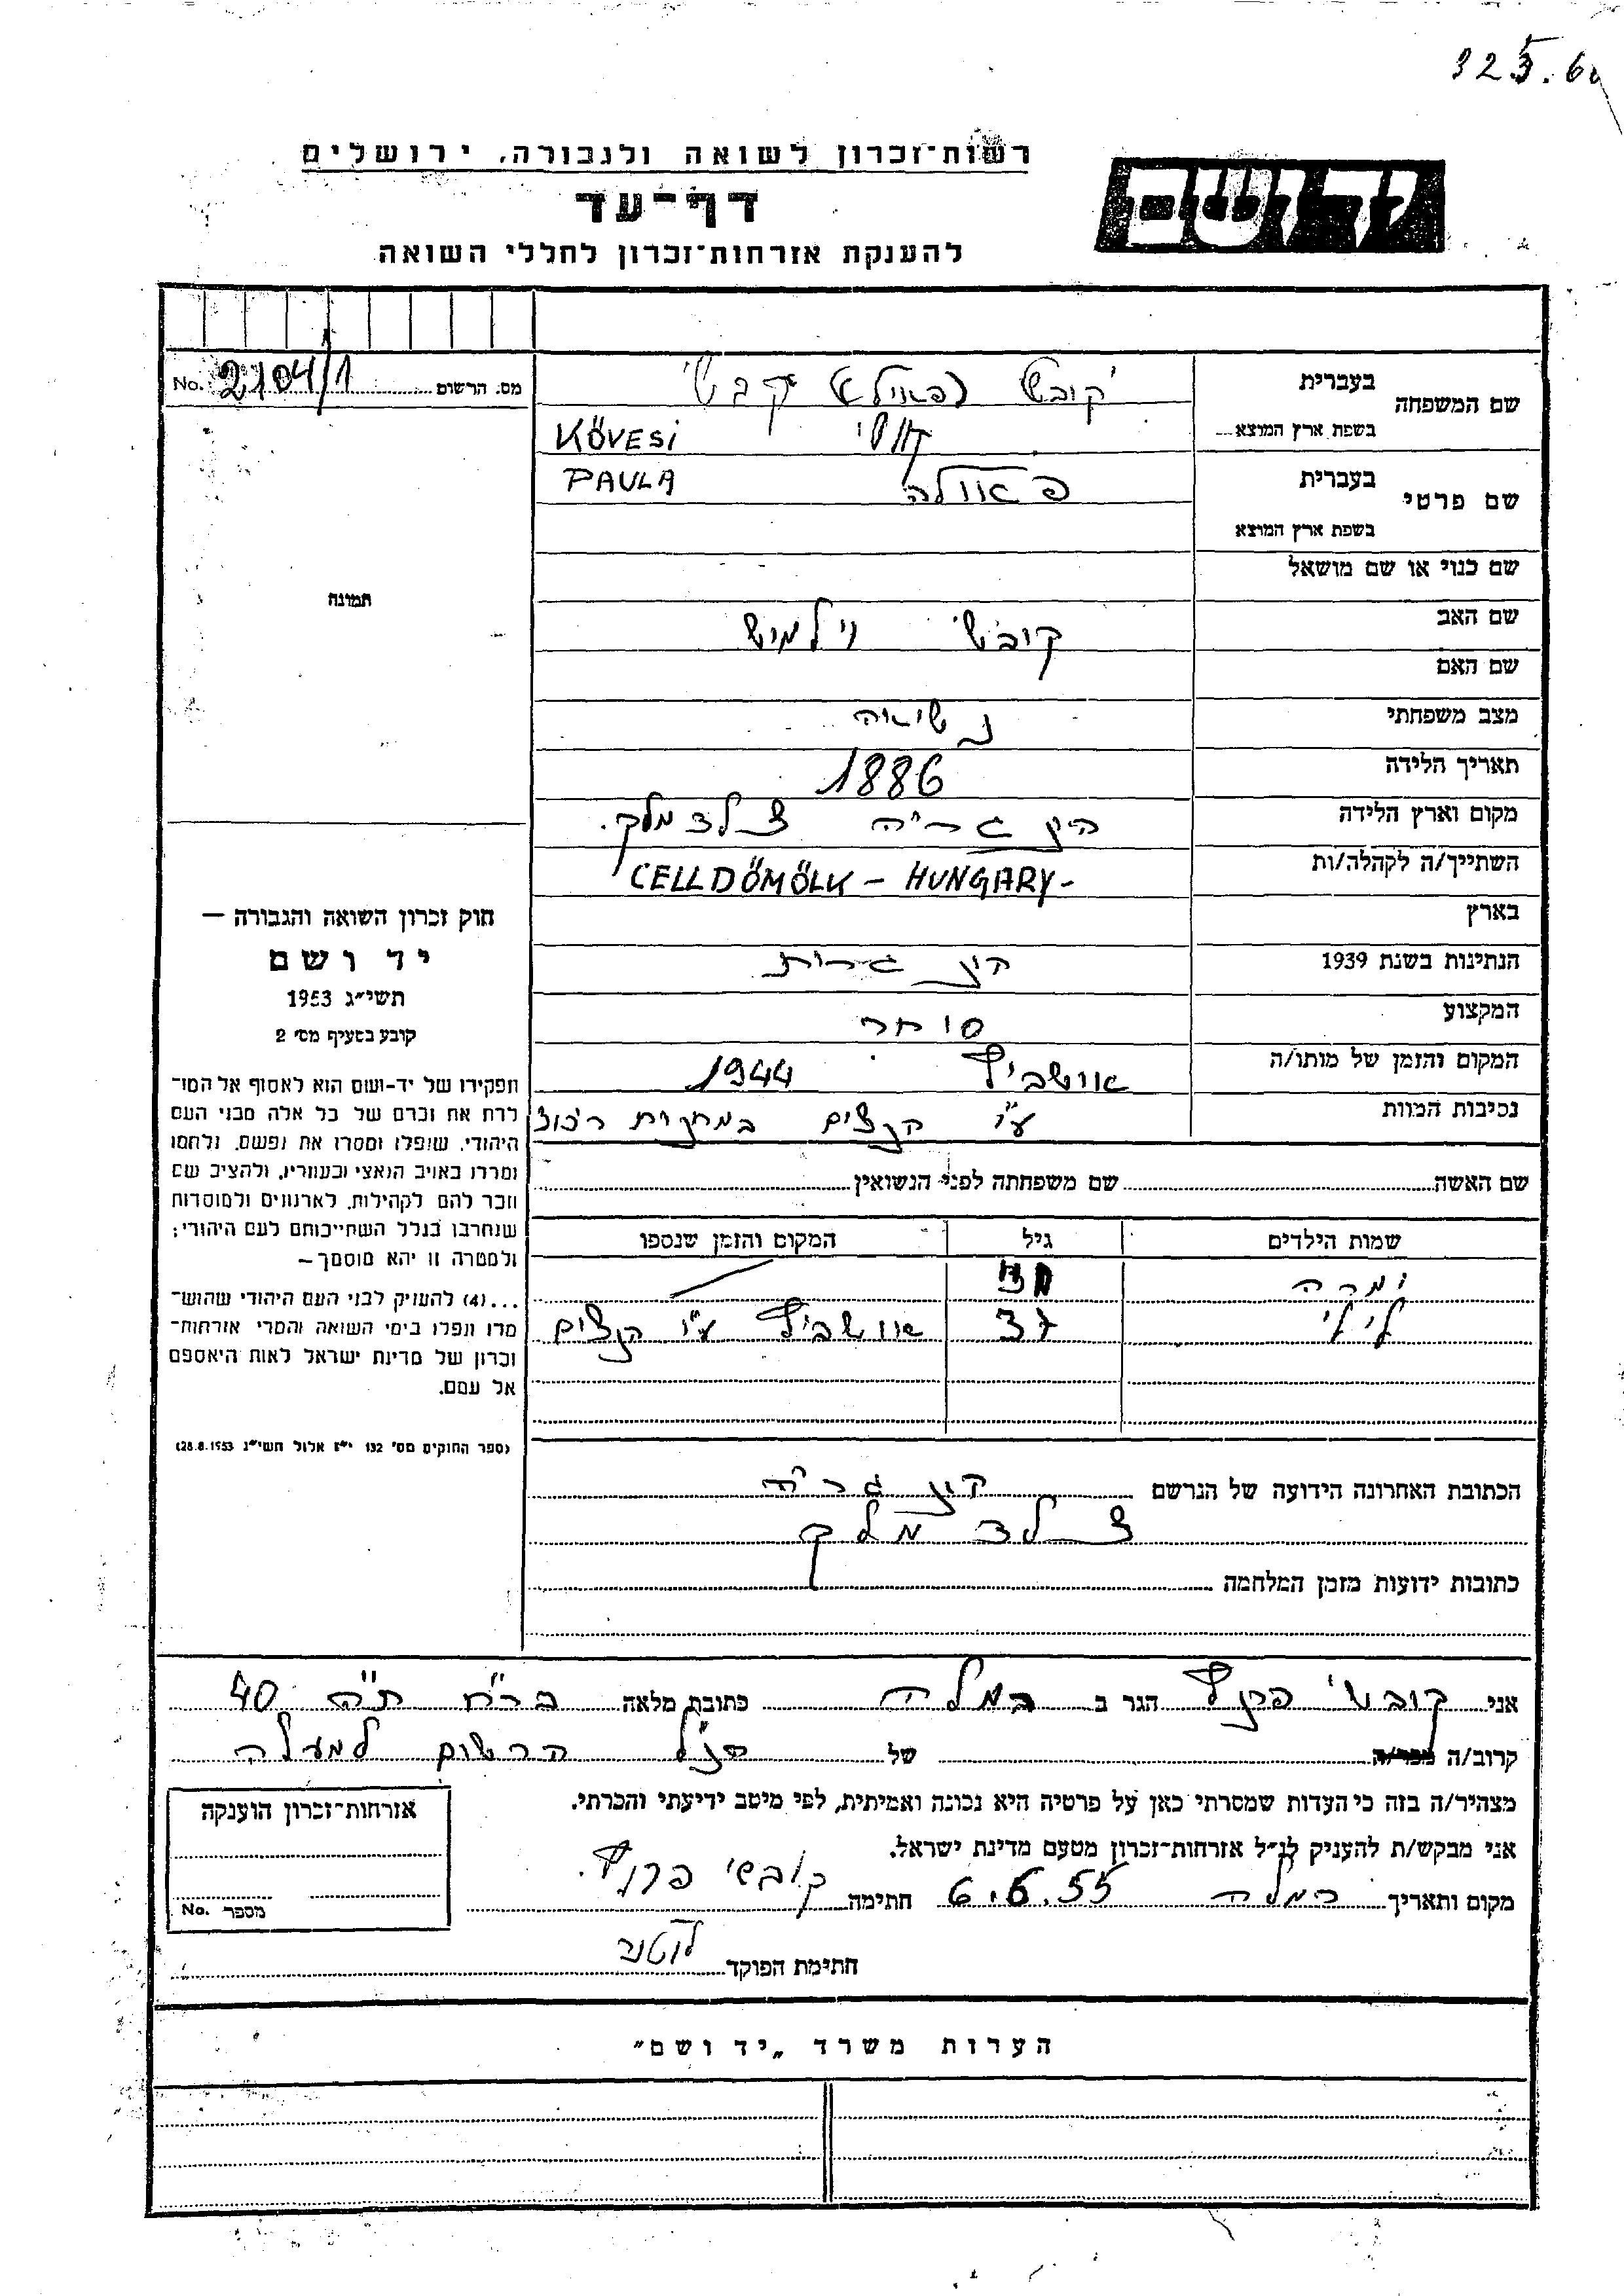 325.6
רשות־זכרון לשואה ולגבורה, ירושלים
דף־עד
להענקת אזרחות־זכרון לחללי השואה
יד ושם
מס. הרשום 2104/1 No.
שם המשפחה
בעברית
בשפת ארץ המוצא
KÖVESI
שם פרטי
בעברית פאולה
PAULA
בשפת ארץ המוצא
שם כנוי או שם מושאל
שם האב קובשי וילמוש
שם האם
מצב משפחתי נשיאה
תאריך הלידה 1886
מקום וארץ הלידה הונגריה צלדמלק.
השתייך/ה לקהלה/ות CELLDÖMÖLK - HUNGARY-
בארץ
הנתינות בשנת 1939 הונגרית
המקצוע סוחר
המקום והזמן של מותו/ה אושביץ 1944
נסיבות המוות ע"י הנצים במחנות ריכוז
שם האשה שם משפחתה לפני הנשואין
שמות הילדים גיל המקום והזמן שנספו
לילי 37 אושביץ ע"י הנצים
תמונה
חוק זכרון השואה והגבורה —
יד ושם
תשי״ג 1953
קובע בסעיף מס׳ 2
תפקידו של יד-ושם הוא לאסוף אל המו־
לדת את זכרם של כל אלה מבני העם
היהודי, שנפלו ומסרו את נפשם, נלחמו
ומרדו באויב הנאצי ובעוזריו, ולהציב שם
וזכר להם לקהילות, לארגונים ולמוסדות
שנחרבו בגלל השתייכותם לעם היהודי;
ולמטרה זו יהא מוסמך—
...(4) להעניק לבני העם היהודי שהוש־
מדו ונפלו בימי השואה והמרי אזרחות־
זכרון של מדינת ישראל לאות היאספם
אל עמם.
(ספר החוקים מס׳ 132 י״ז אלול תשי״ג 28.8.1953)
הכתובת האחרונה הידועה של הנרשם הונגריה
צלדמלק
כתובות ידועות מזמן המלחמה
אני קובשי פרנץ הגר ב רמלה כתובת מלאה 40
קרוב/ה מכר/ה של הנ"ל הרשום למעלה
מצהיר/ה בזה כי העדות שמסרתי כאן על פרטיה היא נכונה ואמיתית, לפי מיטב ידיעתי והכרתי.
אני מבקש/ת להעניק לנ״ל אזרחות־זכרון מטעם מדינת ישראל.
מקום ותאריך רמלה 6.6.55 חתימה קובשי פרנץ.
חתימת הפוקד
אזרחות־זכרון הוענקה
מספר No.
הערות משרד „יד ושם״